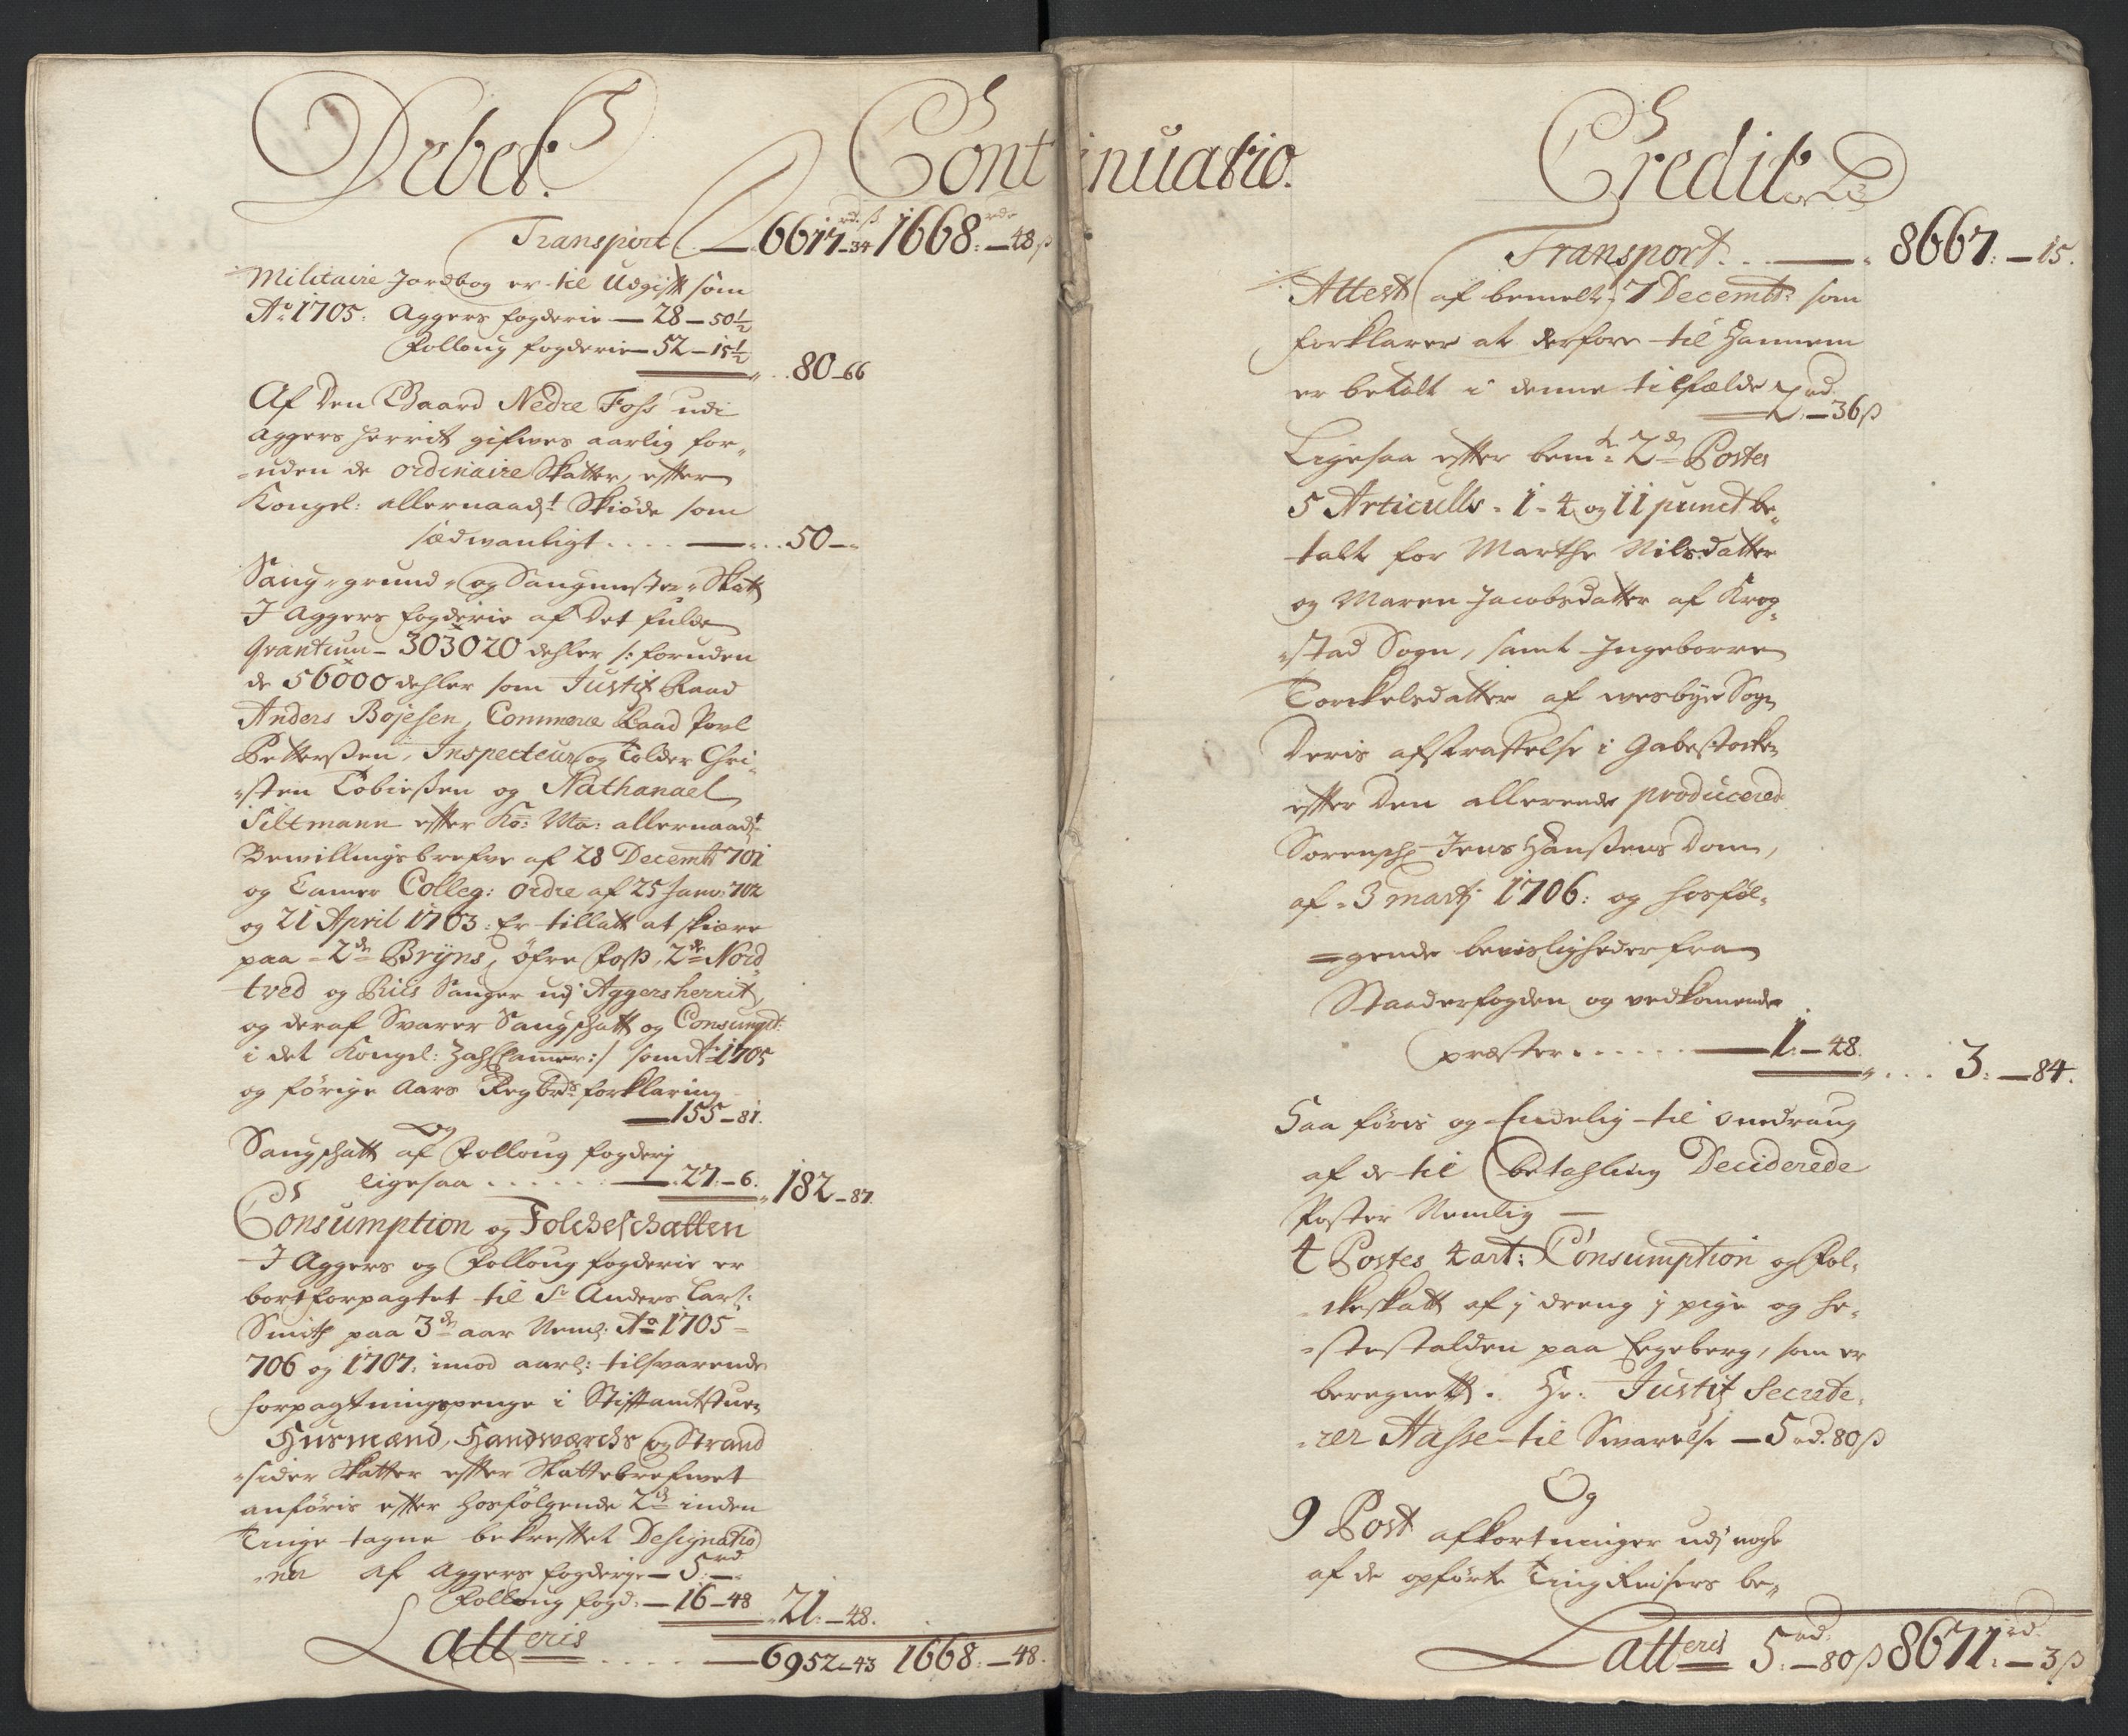 Debet.
Continuatio.
Transport — 6617 rd. 34 ß 1668: rdr — 48 ß
Militaire Jordbog er til Udgift som
Ao 1705. Aggers fogderie — 28 — 50½
Folloug fogderie — 52 — 15½
80 — 66
Af Den Gaard Nedre Foss udi
Aggers herrit gifwes aarlig for„
„uden de ordinaire Skatter, efter
Kongel: allernaadt Skiöde som
sædwanligt . . . . — . . 50 —
Saug „ grund „ og Saugmester „ Skatt
I Aggers fogderie af Det fulde
Qvantum — 303020 dehler /: foruden
de 56000 dehler som Justitz Raad
Anders Bojesen, Commerce Raad Povl
Pettersen, Inspecteur og Tolder Chri„
„sten Tobiesen og Nathanael
Siltmann efter Ko: Ma: allernaadt
Bewillings brefve af 28 Decembr 701
og Camer Colleg: ordre af 25 Janv: 702
og 21 April 1703: Er tillatt at skiære
paa 2de Bryns, öfre Foss, 2de Nord
tved og Riis Sauger udj Aggersherrit,
og deraf Svarer Saugschatt og Consumpt:
i det Kongel: Zahl Camer :/ som Ao 1705
og förige Aars Regbrds forklaring
— 155 — 81.
Og
Saugschatt af Folloug fogderj
ligesaa . . . . . . — 27. — 6. 182 — 87.
Consumption og Folcheschatten
I Aggers og Folloug fogderie er
bortforpagtet til Sr Anders Lars:
Smith paa 3de aar Neml. Ao 1705 —
706 og 1707. imod aarl: tilsvarende
forpagtningspenge i Stiftamtstuen
Husmænd, Handwærchs og Strand
„sider Skatter efter Skattebrefwet
anföris efter hosfölgende 2de inden
Tinge tagne bekreftet Designatio
„ner af Aggers fogderje — 5 rd —
Folloug fogd: — 16 — 48 21. — 48.
Latteris . . . . — 6952 — 43 1668: — 48.
Credit
Transport . . — 8667. — 15.
Attest af bemelte 7 Decembr: som
forklarer at derfore til Hannem
er betalt i denne tilfælde 2 rd. — 36 ß
Ligesaa efter bemte 2de Postes
5 Articulls . 1 . 4 og 11 punct be„
talt for Marthe Nilsdatter
og Maren Jacobsdatter af Krog„
„stad Sogn, samt Ingeborre
Torchelsdatter af wesbye Sogn
Deris afstraffelse i Gabestocken
efter Den allerende producered
Sorensch: Jens Hansens Dom,
af 3 martj 1706: og hosföl„
„gende bevisligheder fra
Staaderfogden og vedkomende
præster . . . . . — 1. — 48. . . . 3. — 84.
Saa föris og Endelig til omdraug
af de til betahling Deciderede
Poster Nemlig —
4 Postes 4 art: Consumption og Fol„
„keskatt af j dreng j pige og he„
„stestalden paa Egeberg, som er
beregnett. Hr. Justitz Secrete„
„rer Hasse til Swarelse — 5 rd. 80 ß
Og
9 Post afkortninger udj nogle
af de opförte Ting Reisers be„
Latteris 5. rd. — 80 ß 8671. rd. — 3 ß